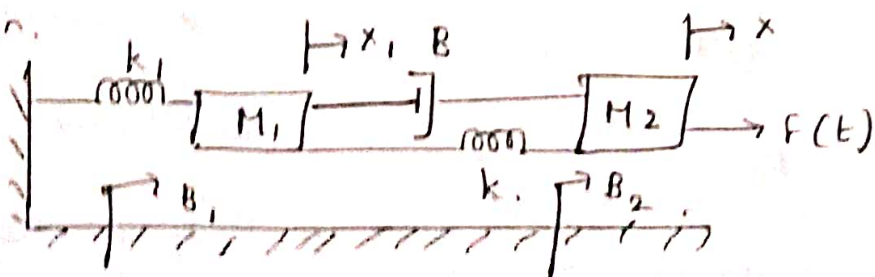 k₁ x₁ B x
M₁ M₂ f(t)
B₁ k. B₂